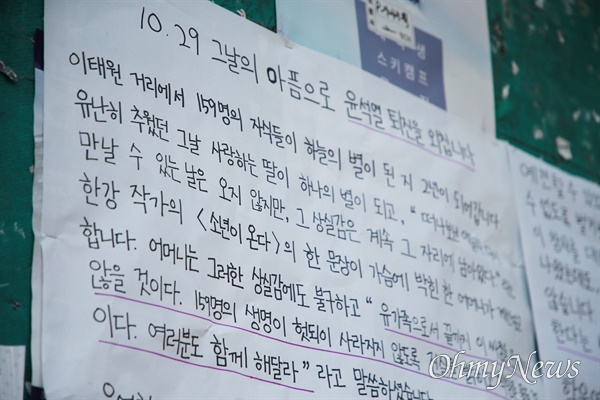 학생
스키캠프
10.29 그날의 아픔으로 윤석열 퇴진을 외칩니다
이태원 거리에서 159명의 자식들이 하늘의 별이 된 지 2년이 되어갑니다
유난히 추웠던 그날 사랑하는 딸이 하나의 별이 되고, "떠나보낸
만날 수 있는 날은 오지 않지만, 그 상실감은 계속 그 자리에 남아있다."
한강 작가의 <소년이 온다>의 한 문장이 가슴에 박힌 한 어머니가
합니다. 어머니는 그러한 상실감에도 불구하고 " 유가족으로서 끝까지 이
않을 것이다. 159명의 생명이 헛되이 사라지지 않도록
이다. 여러분도 함께 해달라" 라고 말씀하셨습니다
수 없도록
이
않습니다
OhmyNews